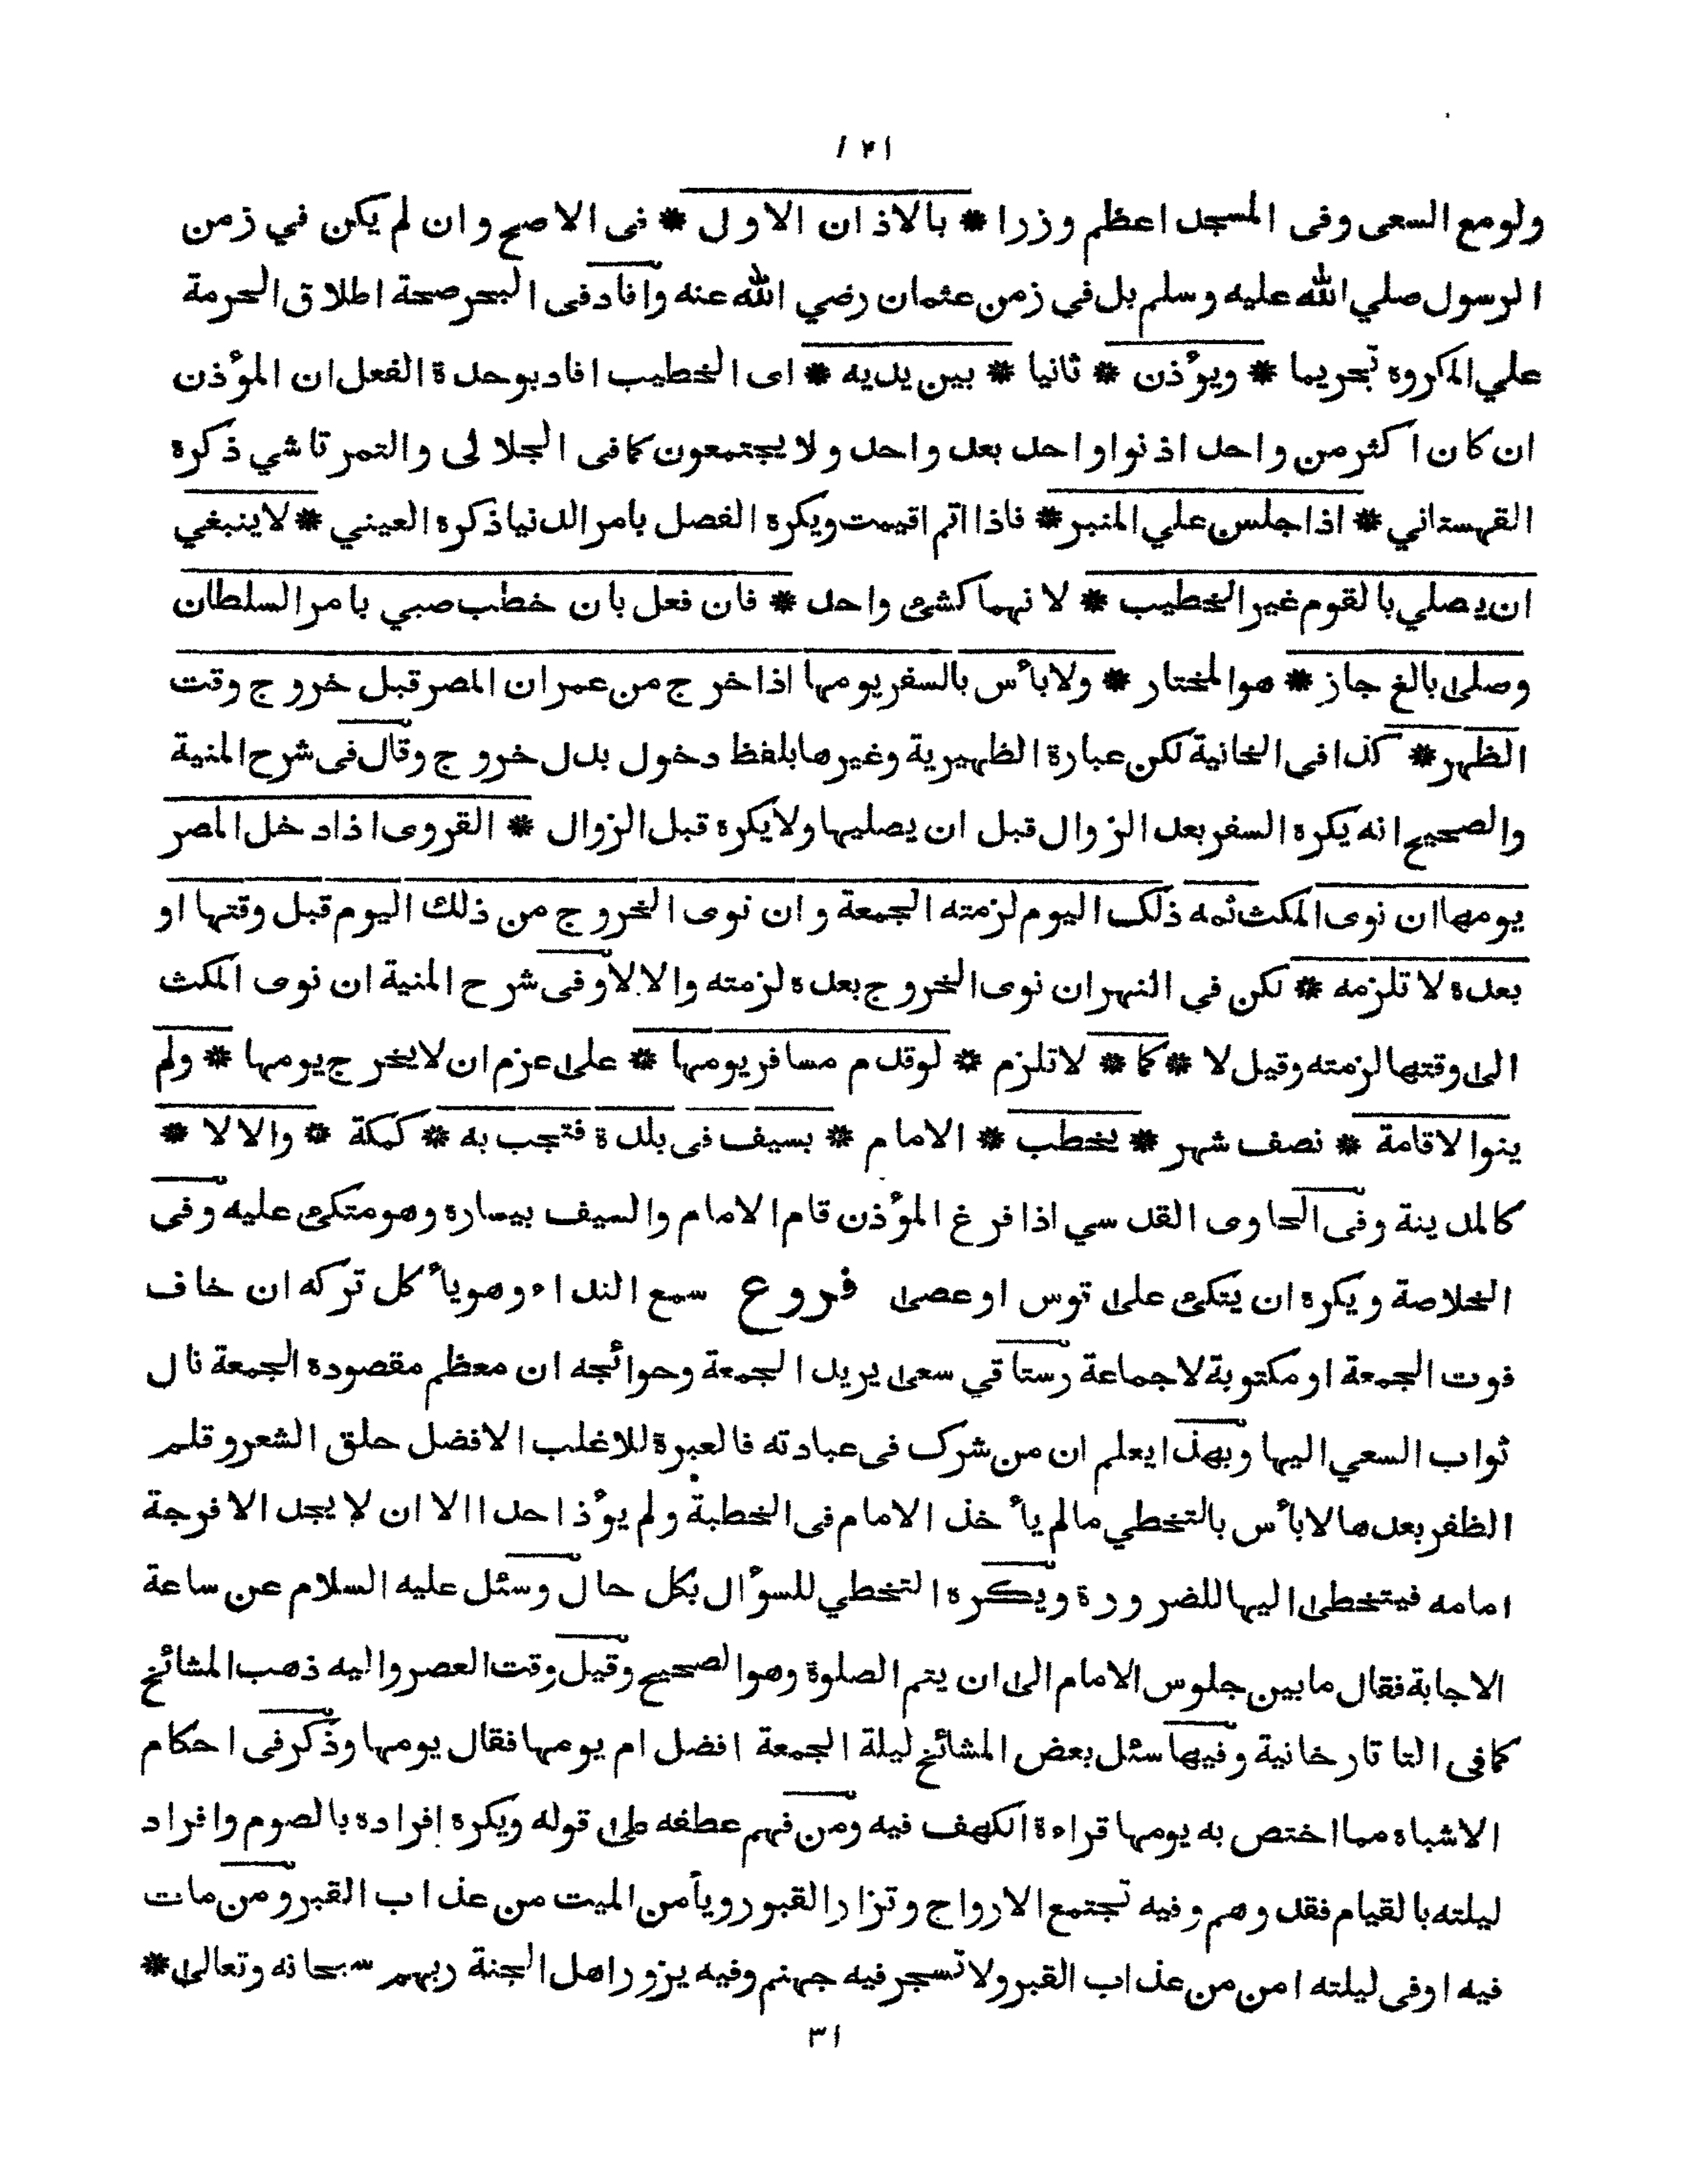 ١٢١
ولو مع السعى وفى المسجد اعظم وزرا * بالاذان الاول * فى الاصح وان لم يكن في زمن
الرسول صلي الله عليه وسلم بل فى زمن عثمان رضي الله عنه وافاد فى البحر صحة اطلاق الحرمة
علي المكروه تحريما * ويؤذن * ثانيا * بين يديه * اى الخطيب افاد بوحدة الفعل ان المؤذن
ان كان اكثر من واحد اذنوا واحد بعد واحد ولا يجتمعون كما فى الجلالى والتمرتاشي ذكره
القهستاني * اذا جلس علي المنبر * فاذا اتم اقيمت ويكره الفصل بامر الدنيا ذكره العيني * لا ينبغي
ان يصلي بالقوم غير الخطيب * لا نهما كشئ واحد * فان فعل بان خطب صبي بامر السلطان
وصلى بالغ جاز * هو المختار * ولا بأس بالسفر يومها اذا خرج من عمران المصر قبل خروج وقت
الظهر * كذا فى الخانية لكن عبارة الظهيرية وغيرها بلفظ دخول بدل خروج وقال فى شرح المنية
والصحيح انه يكره السفر بعد الزوال قبل ان يصليها ولا يكره قبل الزوال * القروى اذا دخل المصر
يومها ان نوى المكث ثمه ذلك اليوم لزمته الجمعة وان نوى الخروج من ذلك اليوم قبل وقتها او
بعده لا تلزمه * لكن في النهر ان نوى الخروج بعده لزمته والا لا وفى شرح المنية ان نوى المكث
الى وقتها لزمته وقيل لا * كما * لا تلزم * لو قدم مسافر يومها * على عزم ان لا يخرج يومها * ولم
ينو الاقامة * نصف شهر * يخطب * الامام * بسيف فى بلدة فتحب به * كمكة * والا لا *
كالمدينة وفى الحاوى القدسي اذا فرغ المؤذن قام الامام والسيف بيساره وهو متكئ عليه وفى
الخلاصة ويكره ان يتكئ على قوس او عصى فروع سمع النداء وهو يأكل تركه ان خاف
فوت الجمعة او مكتوبة لا جماعة رستاقي سعى يريد الجمعة وحوائجه ان معظم مقصوده الجمعة نال
ثواب السعي اليها وبهذا يعلم ان من شرك فى عبادته فالعبرة للاغلب الافضل حلق الشعر وقلم
الظفر بعدها لا بأس بالتخطي ما لم يأخذ الامام فى الخطبة ولم يؤذ احدا الا ان لا يجد الا فرجة
امامه فيتخطى اليها للضرورة ويكره التخطي للسؤال بكل حال وسئل عليه السلام عن ساعة
الاجابة فقال ما بين جلوس الامام الى ان يتم الصلوة وهو الصحيح وقيل وقت العصر واليه ذهب المشائخ
كما فى التاتارخانية وفيها سئل بعض المشائخ ليلة الجمعة افضل ام يومها فقال يومها وذكر فى احكام
الاشباه مما اختص به يومها قراءة الكهف فيه ومن فهم عطفه على قوله ويكره إفراده بالصوم وافراد
ليلته بالقيام فقد وهم وفيه تجتمع الارواح وتزار القبور ويأمن الميت من عذاب القبر ومن مات
فيه او فى ليلته امن من عذاب القبر ولا تسجر فيه جهنم وفيه يزور اهل الجنة ربهم سبحانه وتعالى *
٣١